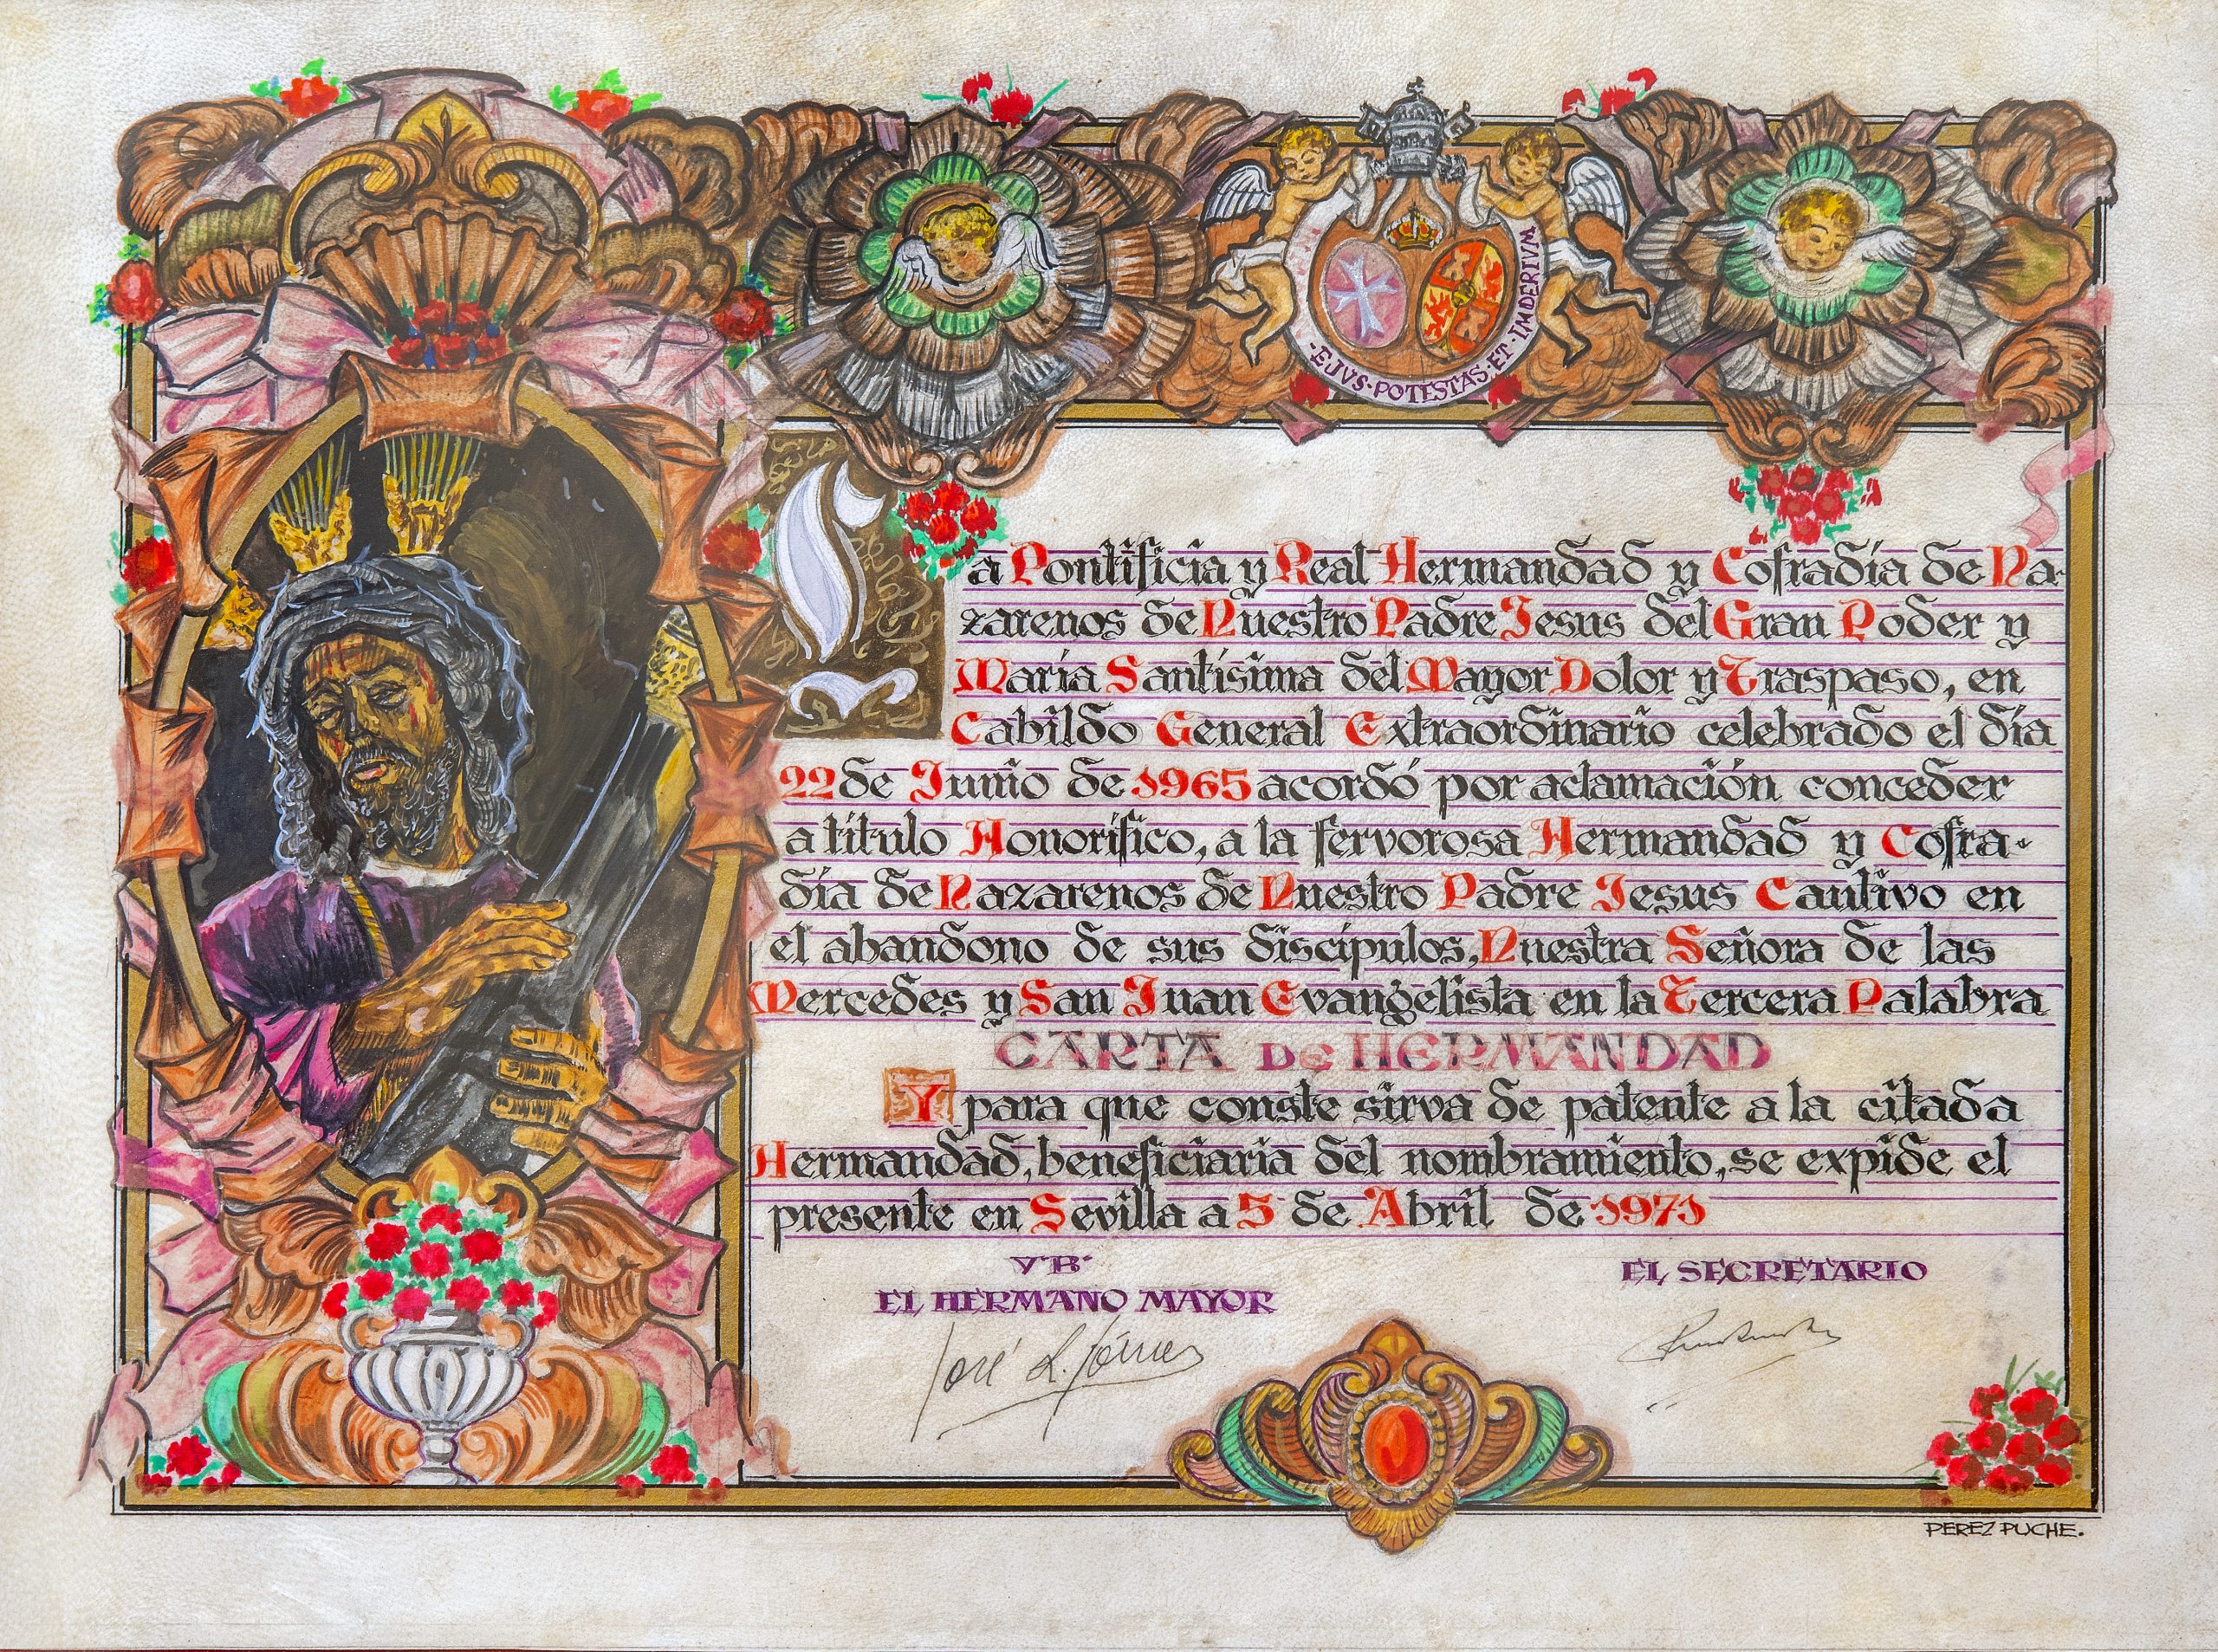 EJVS · POTESTAS · ET · IMDERIVM
La Pontificia y Real Hermandad y Cofradía de Na-
zarenos de Nuestro Padre Jesus del Gran Poder y
María Santísima del Mayor Dolor y Traspaso, en
Cabildo General Extraordinario celebrado el día
22 de Junio de 1965 acordó por aclamación conceder
a título Honorífico, a la fervorosa Hermandad y Cofra-
día de Nazarenos de Nuestro Padre Jesus Cautivo en
el abandono de sus discípulos, Nuestra Señora de las
Mercedes y San Juan Evangelista en la Tercera Palabra
CARTA DE HERMANDAD
Y para que conste sirva de patente a la citada
Hermandad, beneficiaria del nombramiento, se expide el
presente en Sevilla a 5 de Abril de 1971
VºBº
EL HERMANO MAYOR
EL SECRETARIO
José L. Gómez
PEREZ PUCHE.